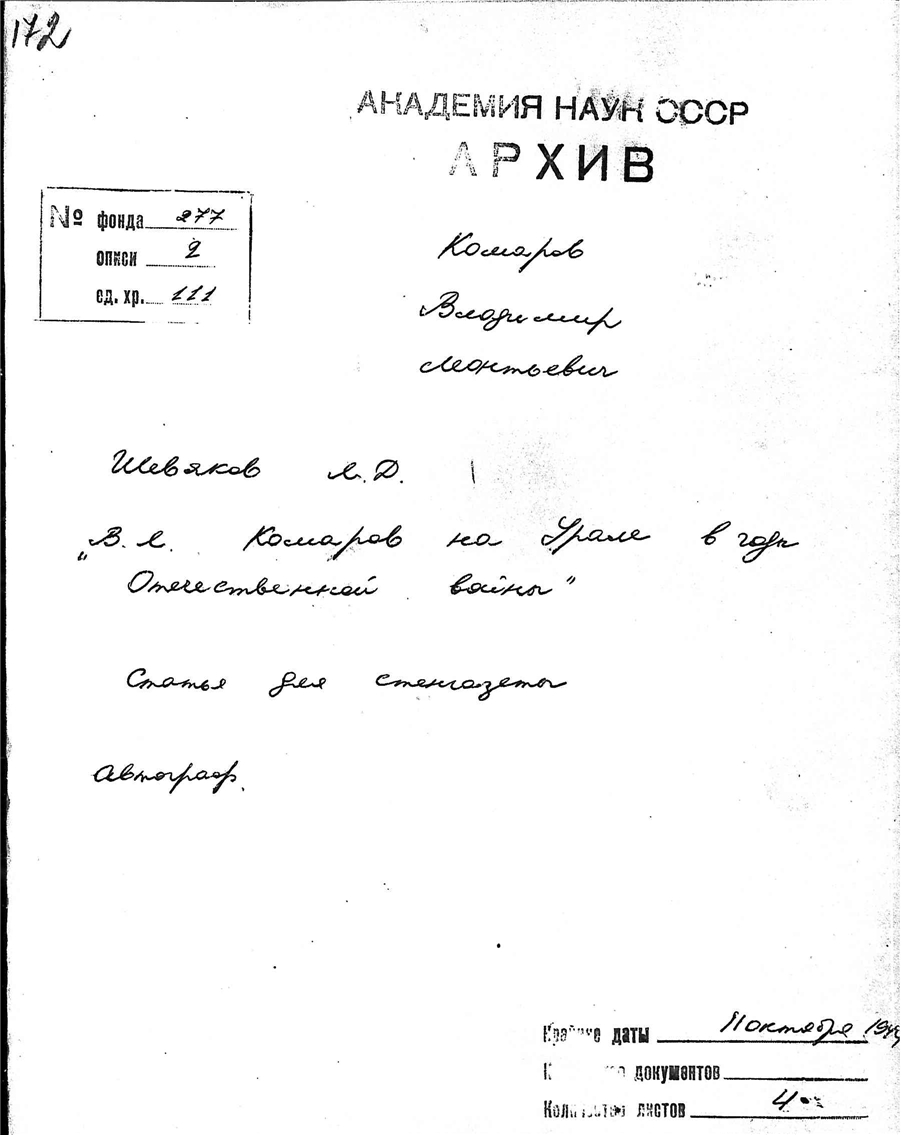 172
АКАДЕМИЯ НАУК СССР
АРХИВ
№ фонда 277
описи 2
ед. хр. 111
Комаров
Владимир
Леонтьевич
Шевяков Л.Д.
„В. Л. Комаров на Урале в годы
Отечественной войны"
Статья для стенгазеты
Автограф.
Крайние даты 11 октября
документов
Количество листов 4